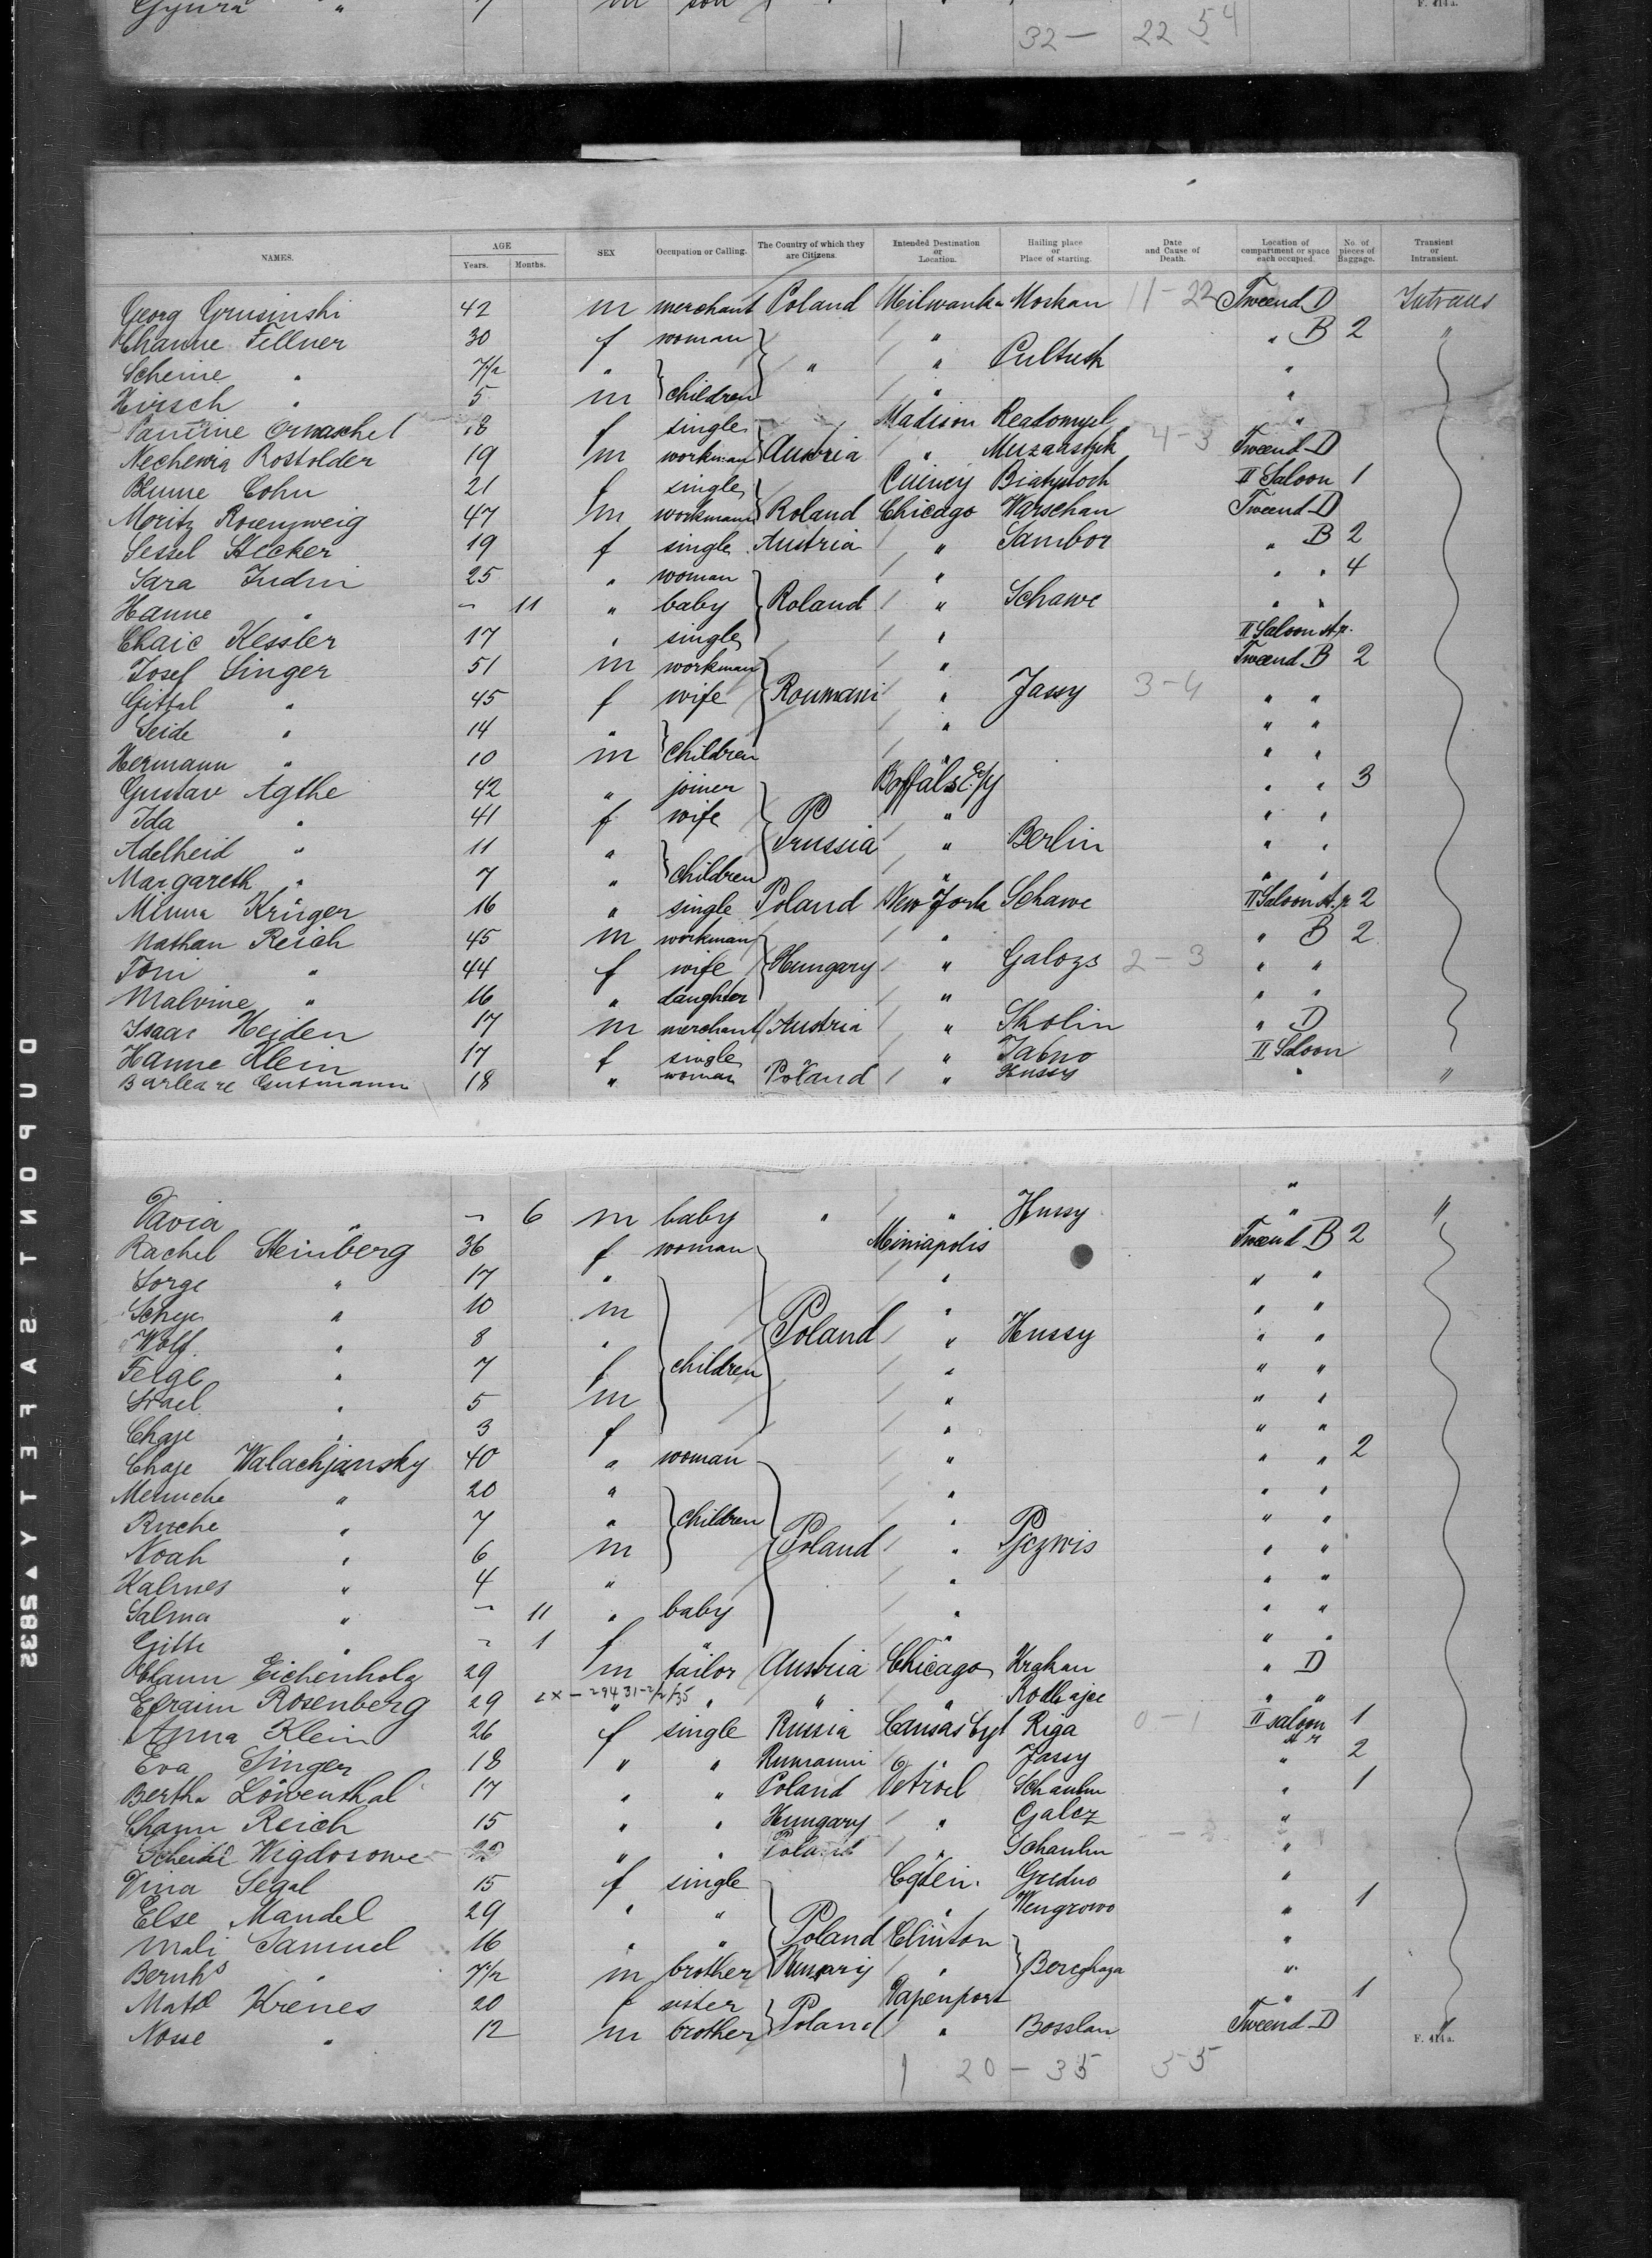 Gyura " 7 m son
F. 414a.
32— 22 54
NAMES. AGE Years. Months. SEX Occupation or Calling. The Country of which they are Citizens. Intended Destination or Location. Hailing place or Place of starting. Date and Cause of Death. Location of compartment or space each occupied. No. of pieces of Baggage. Transient or Intransient.
Georg Grusinski 42 m merchant Poland Milwauke Moskau 11-22 Tweend D Intrans
Channe Fellner 30 f woman " B 2 "
Scheine " 7/12 " " " Pultusk "
Hirsch " 5 m children " "
18 f single Madison Readomysl "
Nechemia Rostolder 19 m workman Austria " 4-3 Tweend D
Blume Cohn 21 f single Quincy Bialystock II Saloon 1
Moritz Rosenzweig 47 m workmann Poland Chicago Warschau Tweend D
Sessel Stecker 19 f single Austria " Sambor " B 2
Sara Judin 25 " woman " " " 4
Hanne " - 11 " baby Poland " Schawe " "
Chaie Kessler 17 " single " II Saloon St.p.
Josef Singer 51 m workman " Tweend B 2
Gittel " 45 f wife Roumani " Jassy 3-4 " "
Seide " 14 " " " "
Hermann " 10 m children " " "
Gustav Agthe 42 " joiner Boffals City " " 3
Ida " 41 f wife " " "
Adelheid " 11 " Prussia " Berlin " "
Margareth " 7 " children " " "
Minna Krüger 16 " single Poland New York Schawe II Saloon St.p. 2
Nathan Reich 45 m workman " " B 2
Toni " 44 f wife Hungary " Galozs 2-3 " "
Malvine " 16 " daughter " " "
Isaac Heiden 17 m merchant Austria " Skolin " D
Hanne Klein 17 f single " Jabno II Saloon
Gutmann 18 " woman Poland " Hussy " "
"
Davia " - 6 m baby " " Hussy " "
Rachel Steinberg 36 f woman Miniapolis Tweend B 2
Sorge " 17 " " " "
Scheje " 10 m " " "
Wolf " 8 " Poland " Hussy " "
Feige " 7 f children " " "
Srael " 5 m " " "
Chaje " 3 f " " "
Chaje Walachjansky 40 " woman " " " 2
Menuche " 20 " " " "
Ruche " 7 " children " " "
Noah " 6 m Poland " " "
Kalmes " 4 " " " "
Salma " - 11 " baby " " "
Gitte " - 1 f " " " "
Chaim Eichenholz 29 m tailor Austria Chicago Krakau " D
Efraim Rosenberg 29 " " " " " "
Anna Klein 26 f single Russia Cansas Cyt Riga 0-1 II saloon 1
Eva Singer 18 " " Rumanni " Jassy " 2
Bertha Löwenthal 17 " " Poland Detroit Schaulen " 1
Reich 15 " " Hungary " Galcz "
Wigdosowe " " Poland " Schaulen "
Dina Segal 15 f single Grodno "
Else Mandel 29 " " " Wengrowo " 1
Mali Samuel 16 " " Poland Clinton "
Bernhd " 7/12 m brother Hungary " "
Krenes 20 f sister Dapenport " 1
Nosse " 12 m brother Poland " Bosslau Tweend D
F. 414a.
20-35 55
DUPONT SAFETY 5832